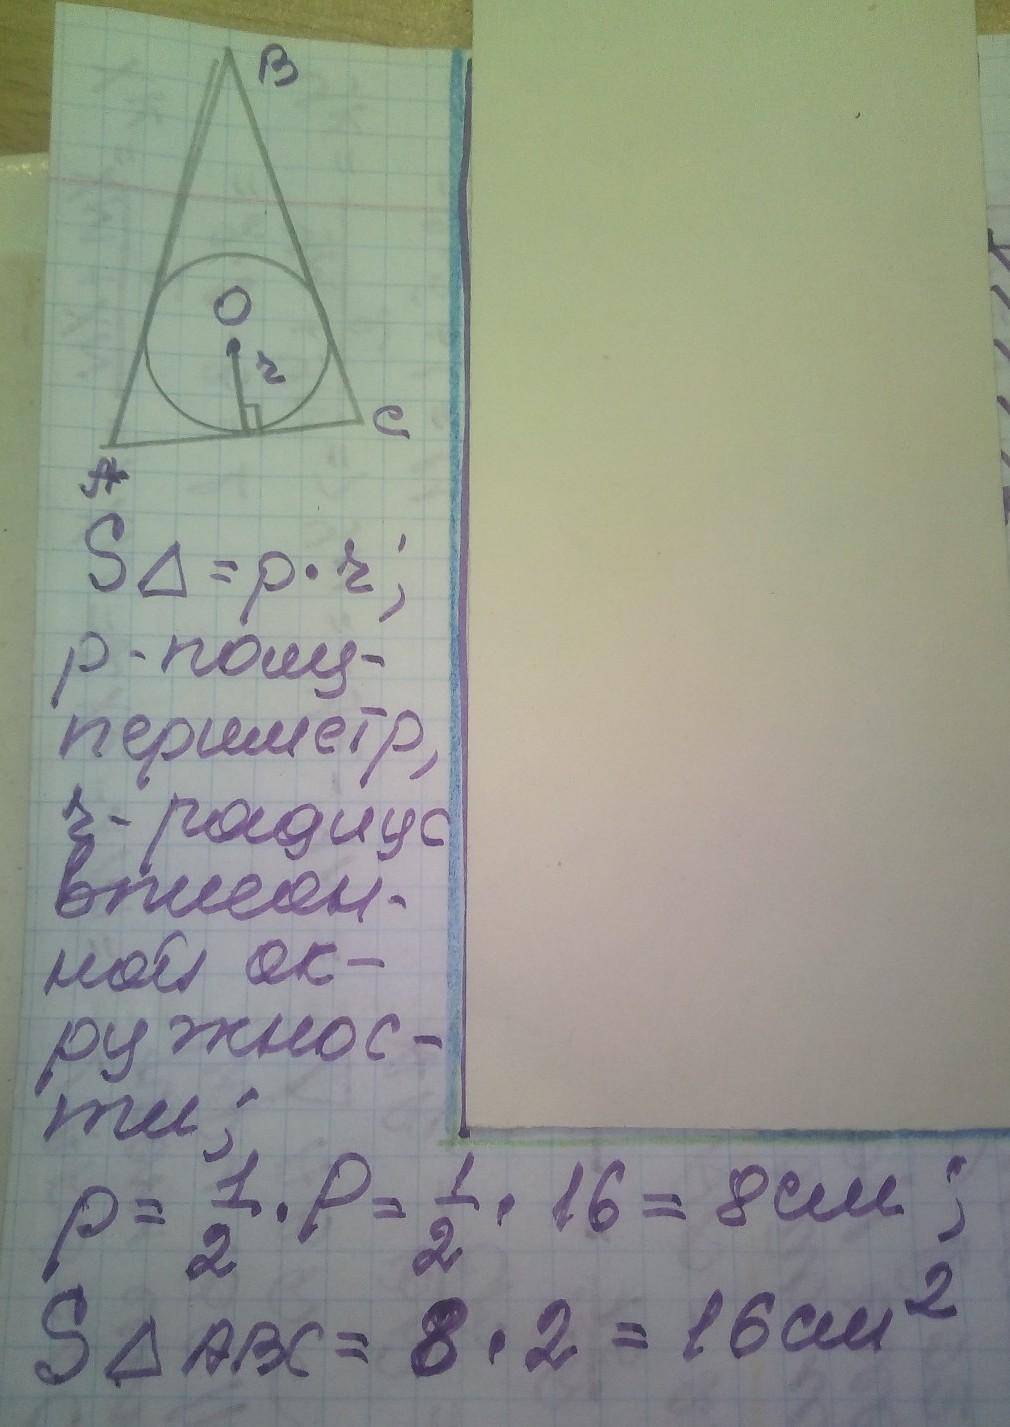 B
O
r
C
A
S△ = p · r;
p - полу-
периметр,
r - радиус
вписан-
ной ок-
ружнос-
ти;
p = 1/2 · P = 1/2 · 16 = 8 см;
S△ABC = 8 · 2 = 16 см²